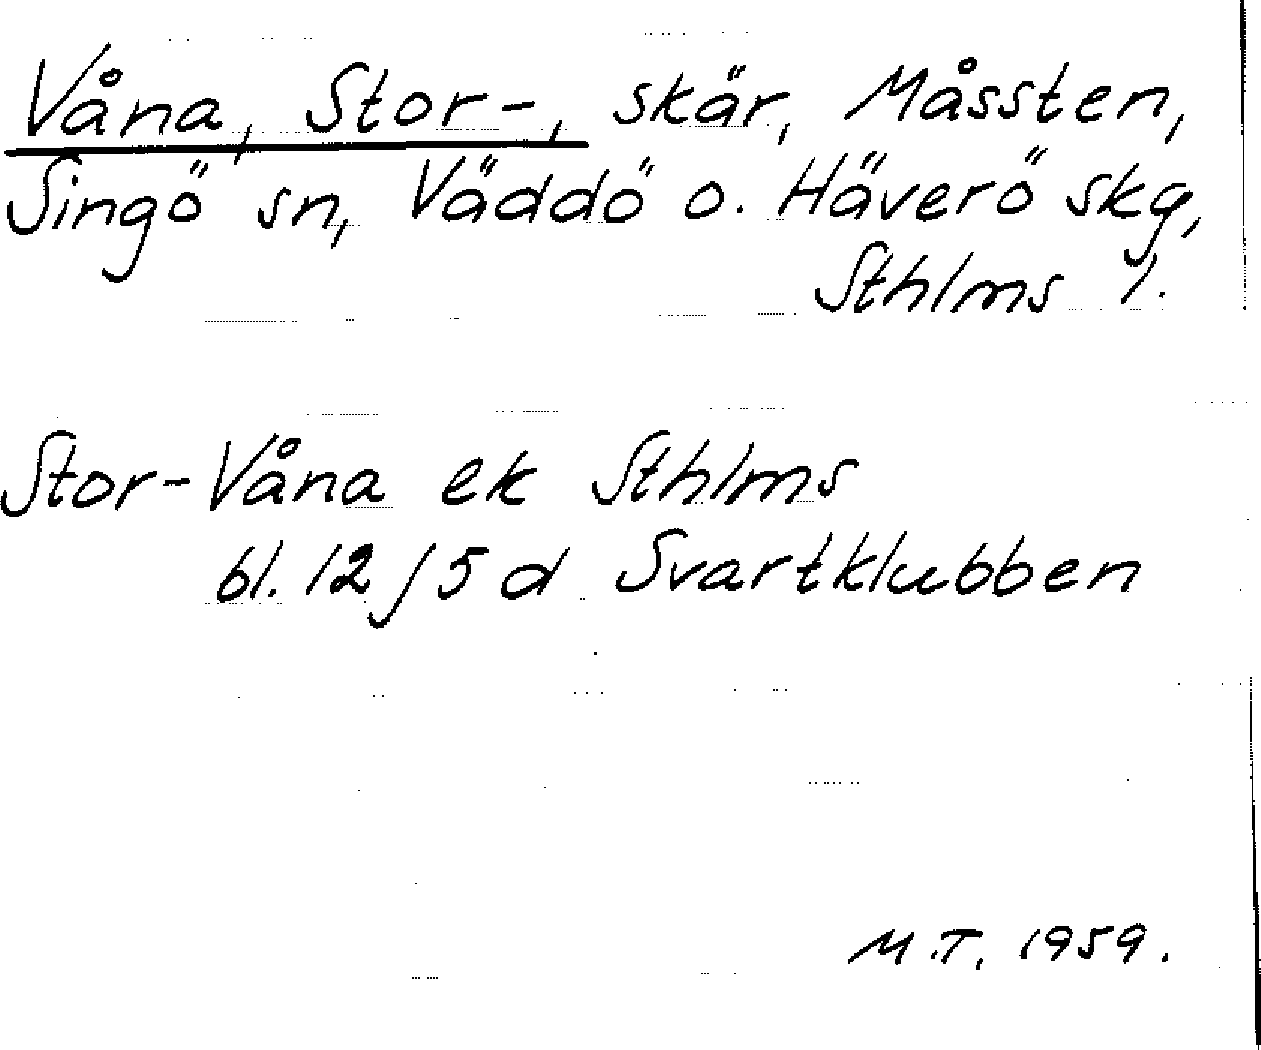 Våna, Stor-, skär, Måssten,
Singö sn, Väddö o. Häverö skg,
Sthlms l.
Stor-Våna ek Sthlms
bl. 12/5 d Svartklubben
M.T. 1959.